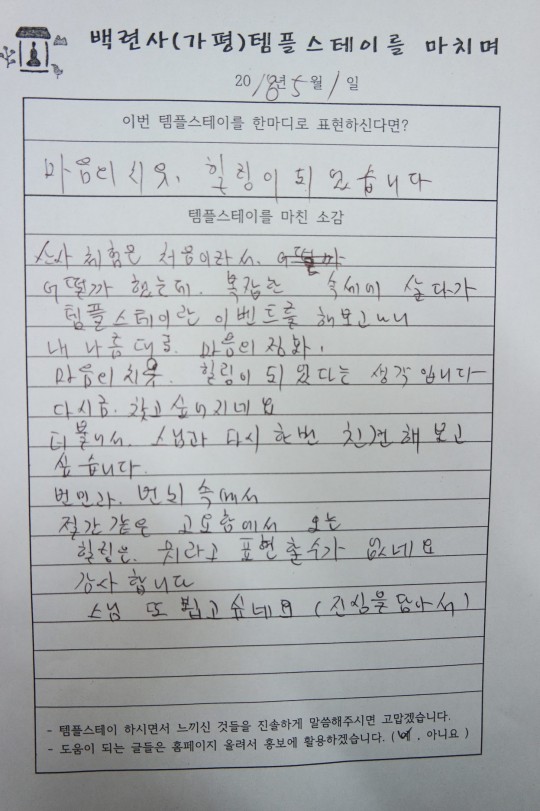 백련사(가평)템플스테이를 마치며
2018년 5월 1일
이번 템플스테이를 한마디로 표현하신다면?
마음의 치윳, 힐링이 되었습니다
템플스테이를 마친 소감
산사 체험은 처음이라서, 어떨까
어떨까 했는데. 복잡한 속세에 살다가
템플스테이란 이벤트를 해보고 나니
내 나름대로. 마음의 정화,
마음의 치윳. 힐링이 되었다는 생각입니다
다시금. 찾고 싶어지네요
더불어서. 스님과 다시 한번 친견해 보고
싶습니다.
번민과. 번뇌 속에서
절간 같은 고요함에서 오는
힐링은. 뭐라고 표현할수가 없네요
감사 합니다
스님 또 뵙고싶네요 (진심을 담아서)
- 템플스테이 하시면서 느끼신 것들을 진솔하게 말씀해주시면 고맙겠습니다.
- 도움이 되는 글들은 홈페이지 올려서 홍보에 활용하겠습니다. (예 . 아니요 )